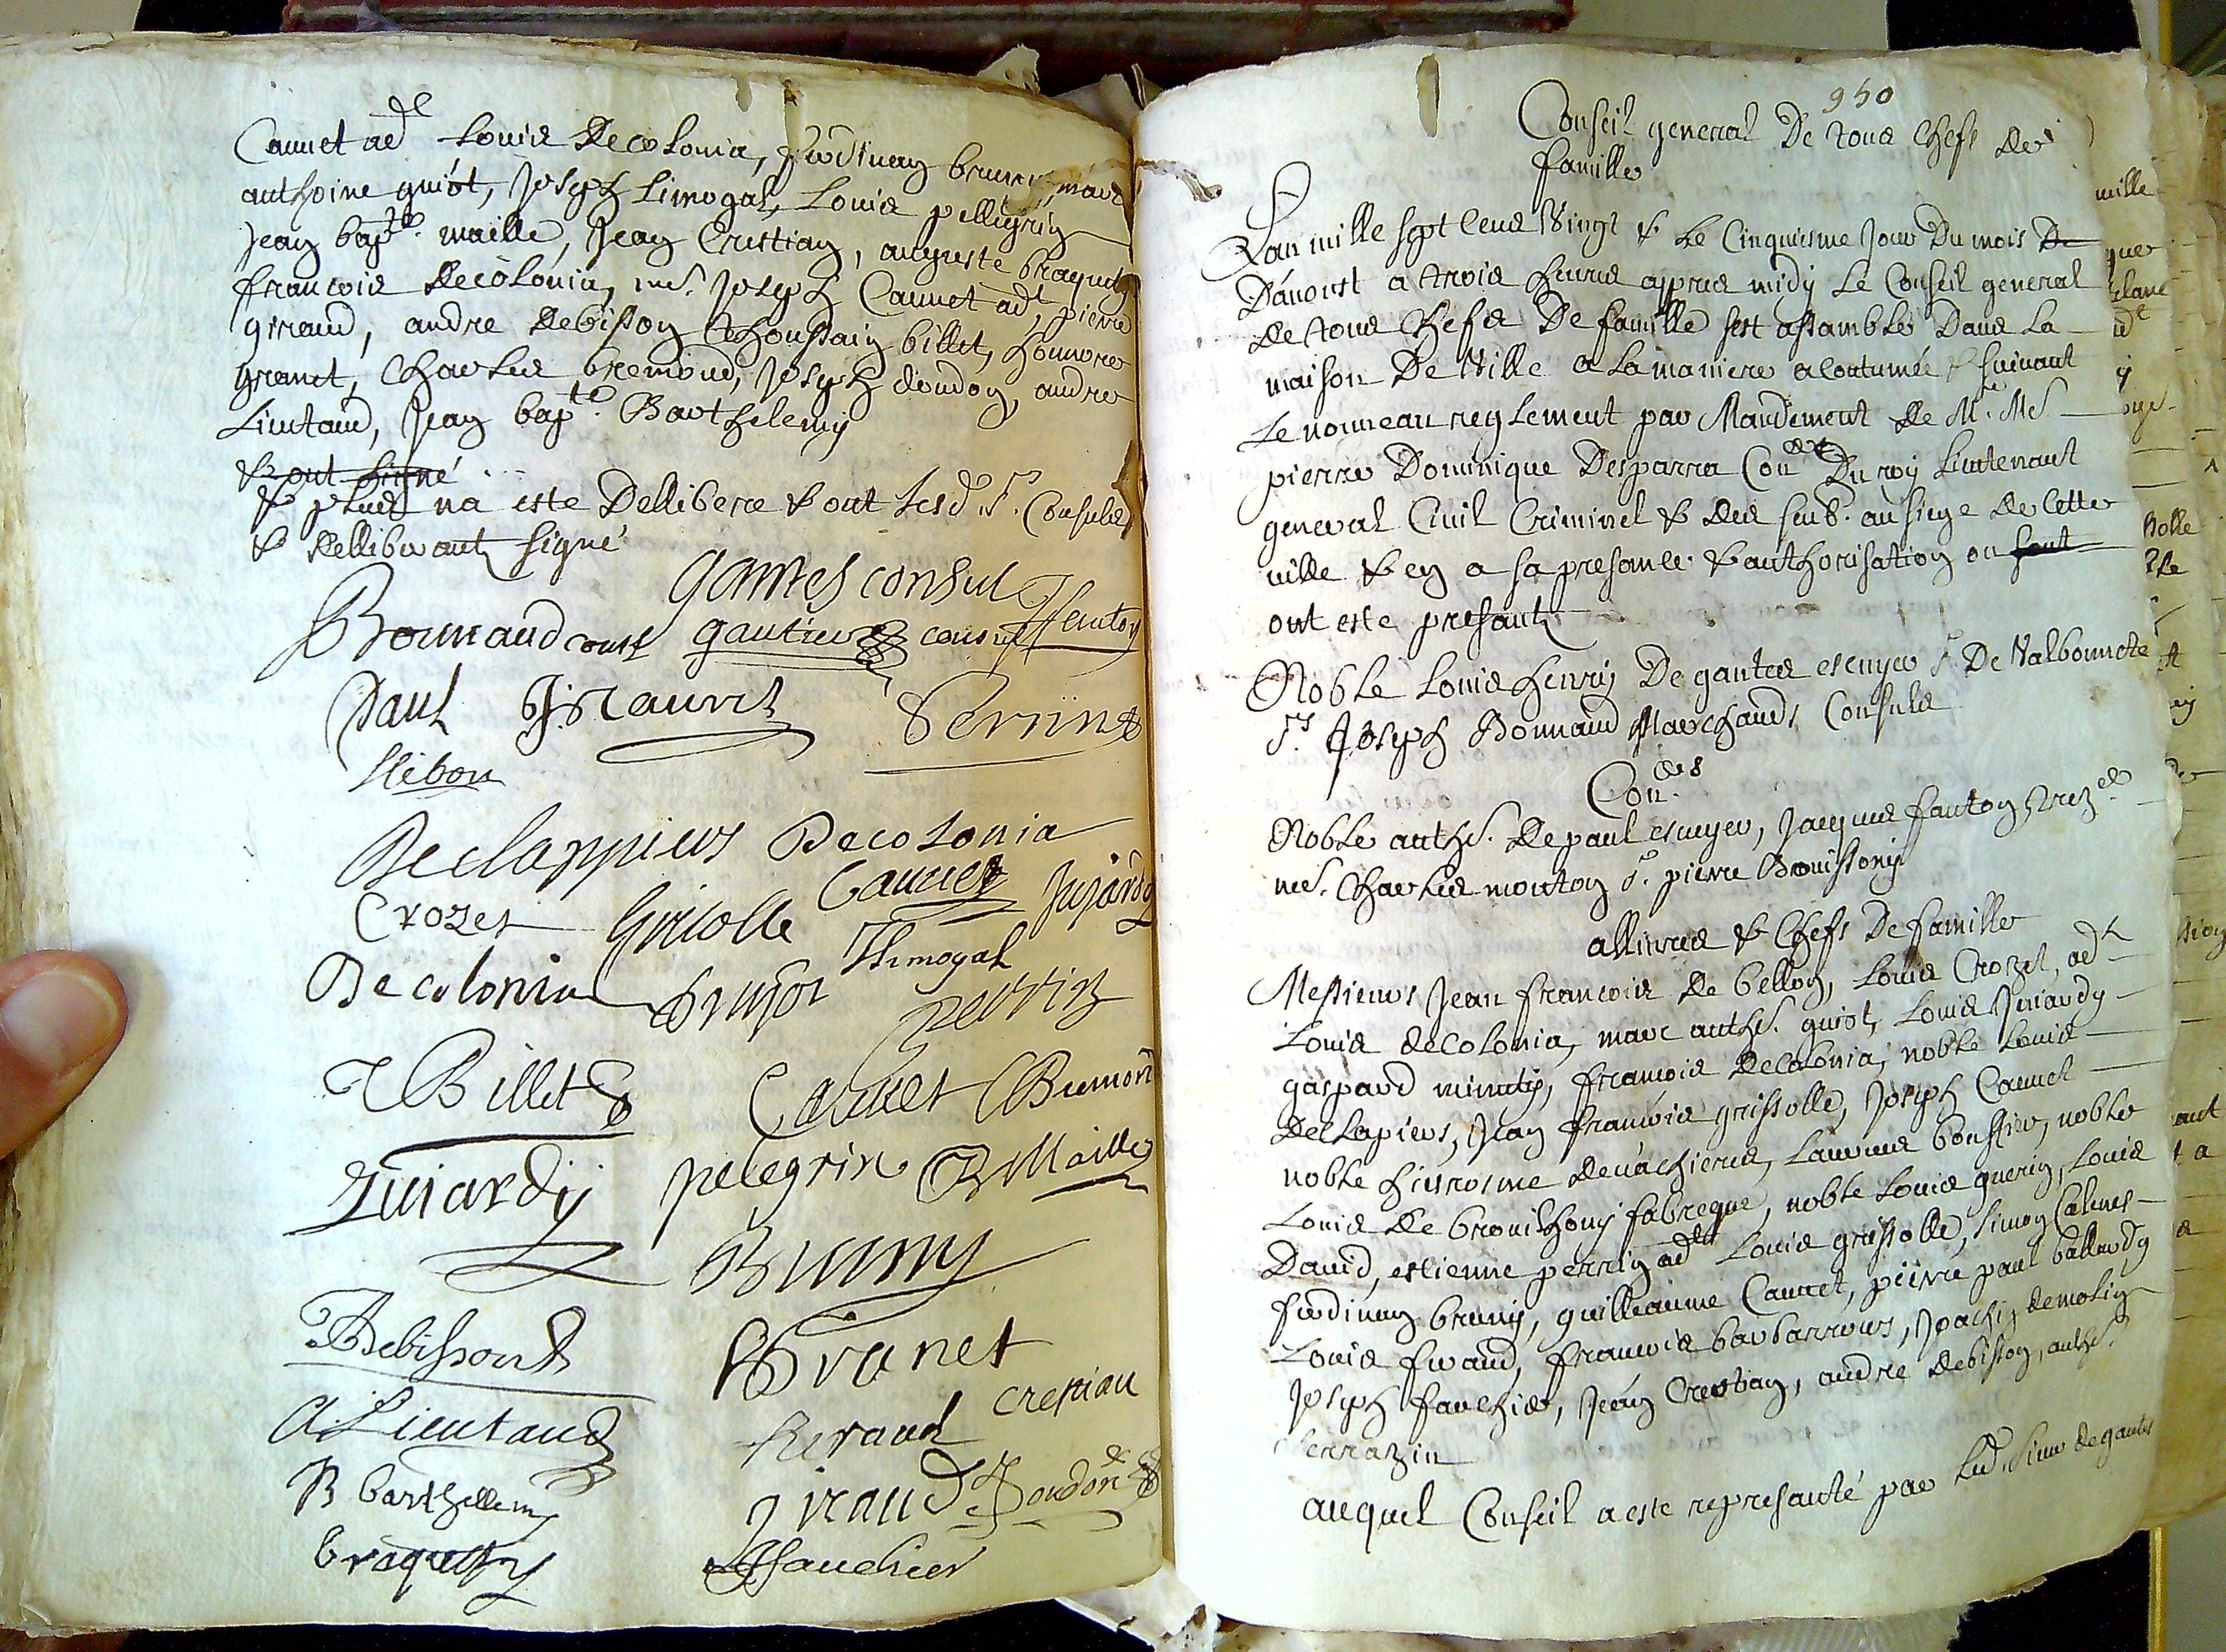 Cauuet adt Louis Decolonia, ferdinan bruny, marc
anthoine guiot, Joseph Limogal, Louis pellegrin
Jean bapte. maille, Jean Crestian, auguste braquety
francois Decolonia, me. Joseph Cauuet adt, pierre
giraud, andre debisson thoussain billet, honnore
granet, Charles bremond, Joseph doudon, andre
Lieutaud, Jean bapte Barthelemy
& ont signé
& plus na este Dellibere & ont lesd. Srs. Consuls
& delliberants signé
gantes consul
Bounaud consl gautier consul fenton
Paul Girauvt Perrin
Hebon
Declappiers Decolonia
Crozet Grisolle Cauuet Jujardy
Decolonia Guiot Limogal
perrin
T Billet Cauuet Bremon
Juiardy pelegrin B Maille
Bruny
ADebisson Granet
A Lieutaud Feraud crestian
B barthellemy giraud J Doudon
braquety Fauchier
950
Conseil general De tous Chefs de
famille
Lan mille sept Cens Vingt & Le Cinquiesme Jour Du mois De
Daoust a trois heures appres midy Le Conseil general
de tous Chefs De famille sest assamble Dans La
maison De Ville a La maniere acoutumée & suivant
Le nouveau reglement par Mandement de Mr. Me
pierre Dominique Desparra Coner Du roy Lieutenant
general Ciuil Criminel & des soub. au siege de Cette
ville & en a sa presance & authorisation ou sont
ont este presants
Noble Louis henry De gantes escuyer Sr De Valbonnete
Sr. Joseph Bounaud Marchands Consuls
Coners
Noble anthe. De paul escuyer, Jacques fanton trezer
me. Charles mouton Sr. pierre Brouissony
allivres & Chefs De famille
Messieurs Jean francois de bellon, Louis Crozet, adt
Louis decolonia, marc anthe. guiot, Louis Juiardy
gaspard minuty, francois Decolonia, noble Louis
Declapiers, Jean francois grissolle, Joseph Cauuet
noble hierosme deuachieres, Laurens bonssier, noble
Louis de brouilhony fabregue, noble Louis guerin, Louis
Dauid, estienne perrin adts Louis grissolle, simon Calmes
ferdinan bruny, guilleaume Cauuet, pierre paul ballardy
Louis feraud, francois barbarroux, Joachin demolin
Joseph fauchier, Jean Crestian, andre debisson, anthe.
serrazin
auquel Conseil a este represanté par Led. Sieur de gantes